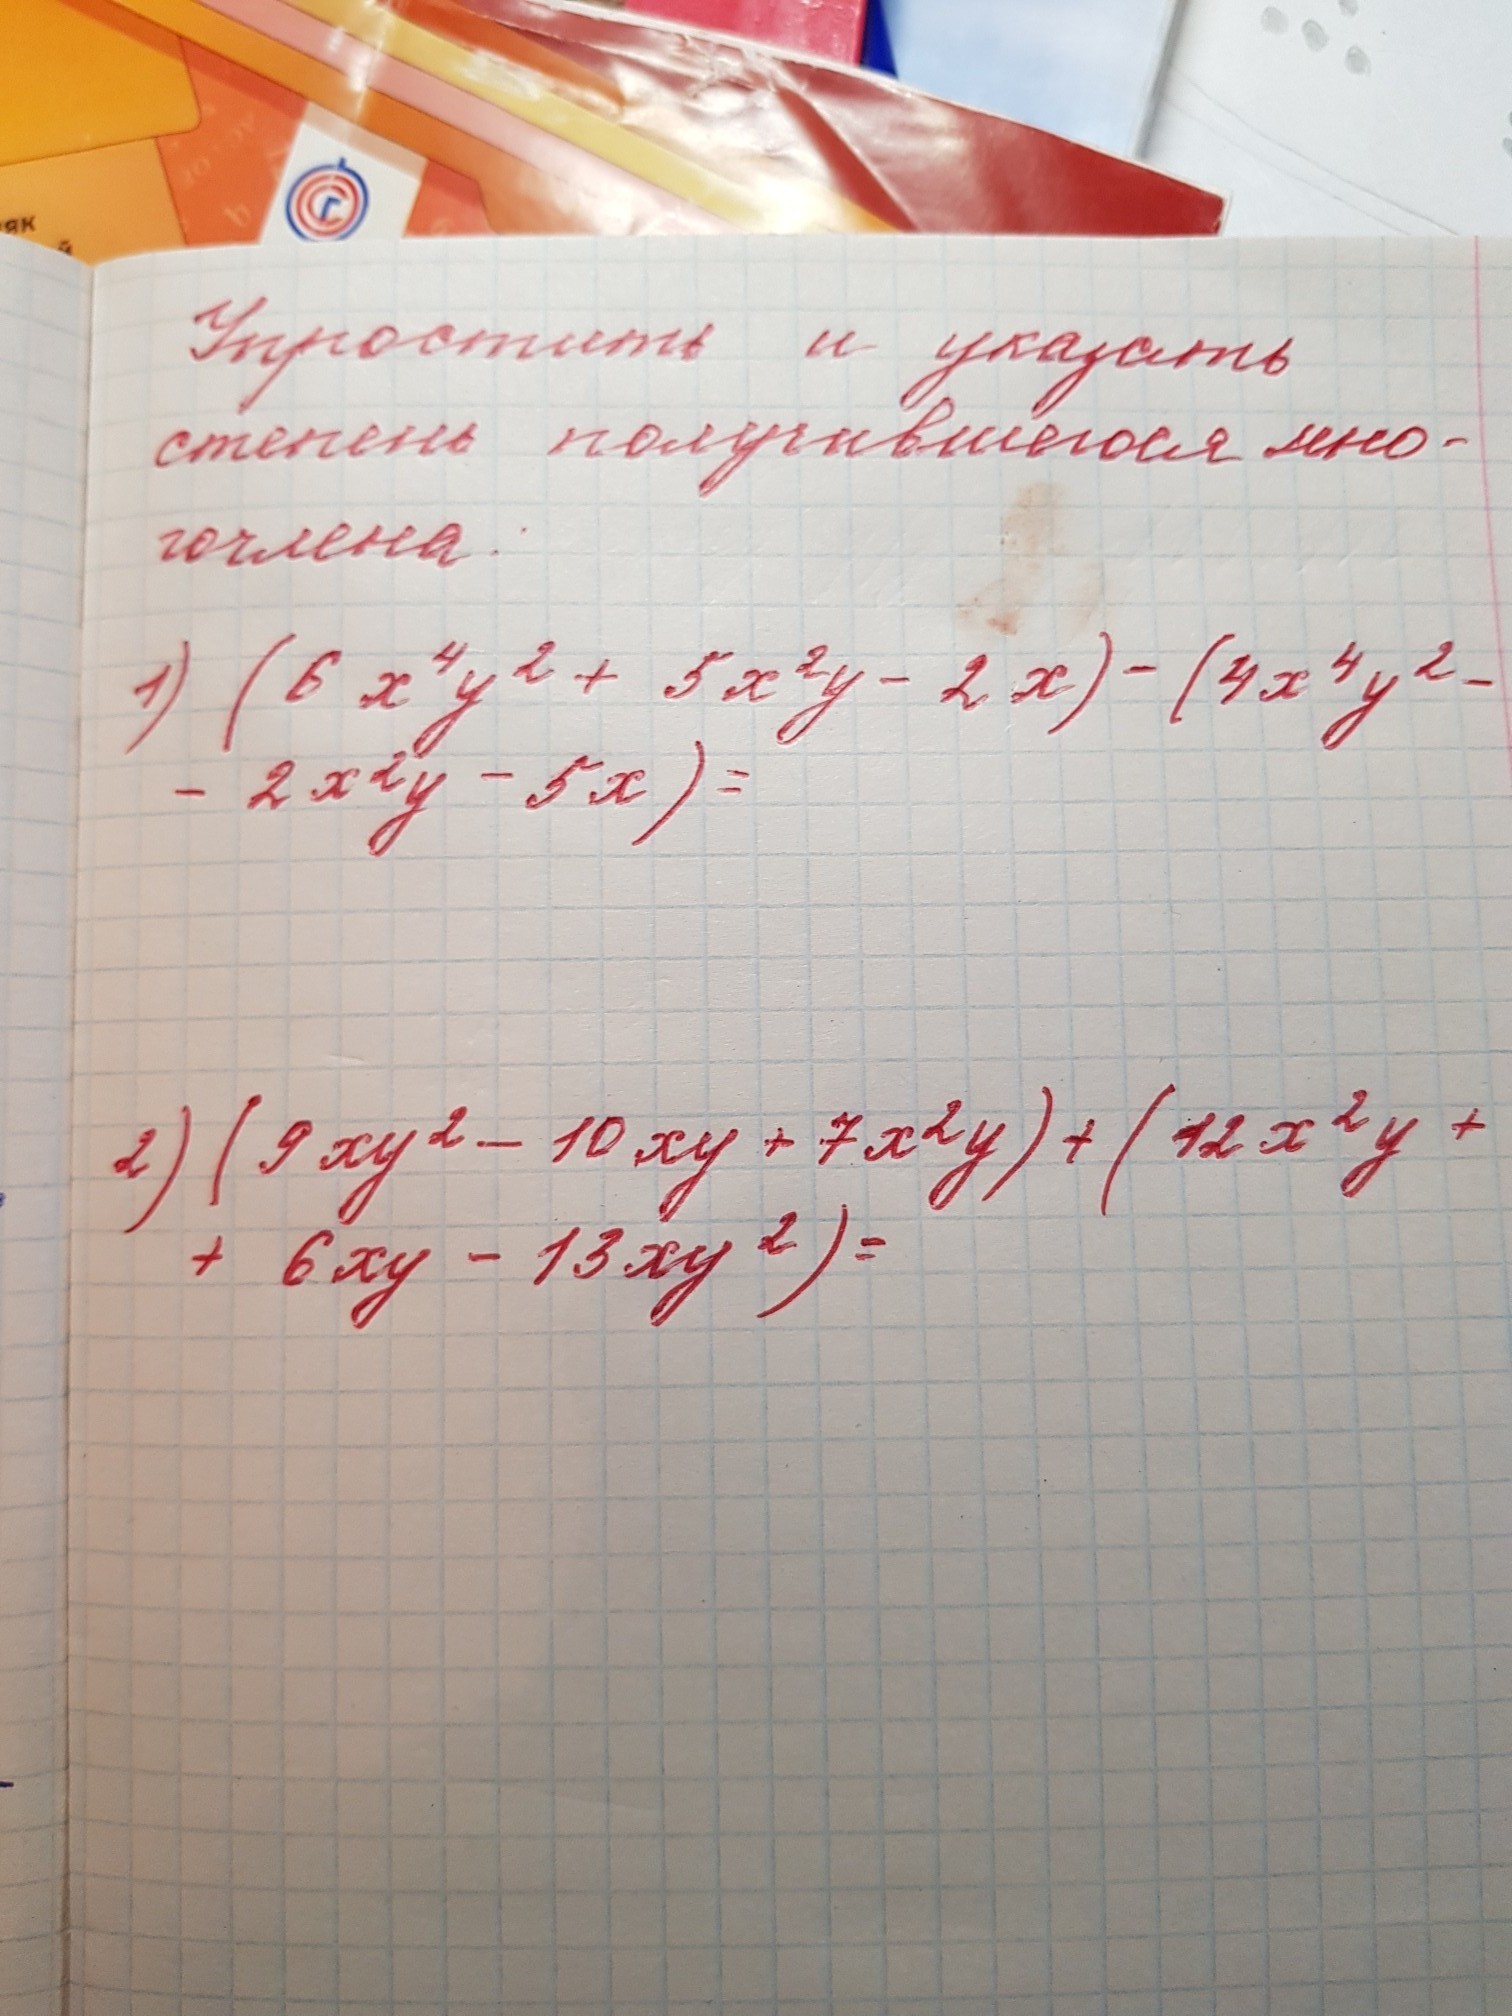 як
й
Упростить и указать
степень получившегося мно-
гочлена:
1) (6x⁴y² + 5x²y - 2x) - (4x⁴y² -
- 2x²y - 5x) =
2) (9xy² - 10xy + 7x²y) + (12x²y +
+ 6xy - 13xy²) =